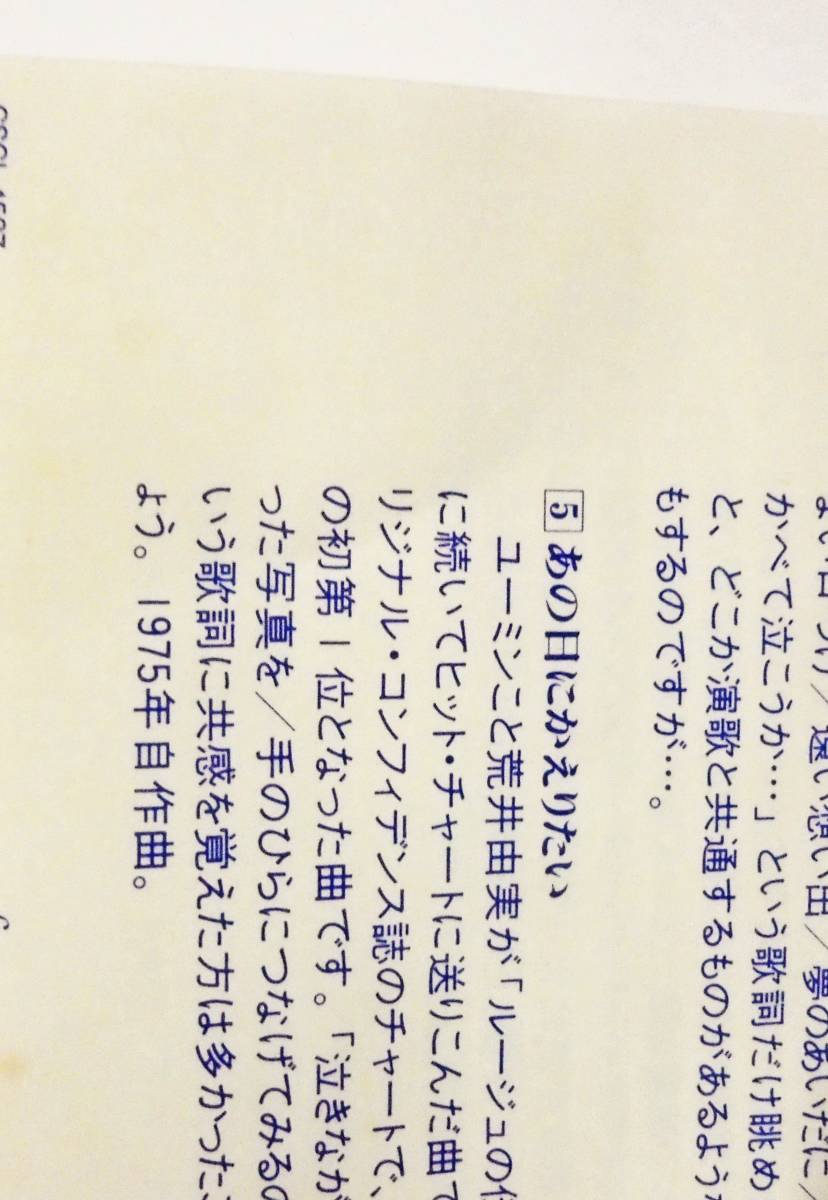 い出/夢のあいだに/
かべて泣こうか…」という歌詞だけ眺め
と、どこか演歌と共通するものがあるよう
もするのですが…。
5 あの日にかえりたい
ユーミンこと荒井由実が「ルージュの
に続いてヒット・チャートに送りこんだ曲で
リジナル・コンフィデンス誌のチャートで、
の初第1位となった曲です。「泣きなが
った写真を/手のひらにつなげてみるの
いう歌詞に共感を覚えた方は多かった
ょう。1975年自作曲。